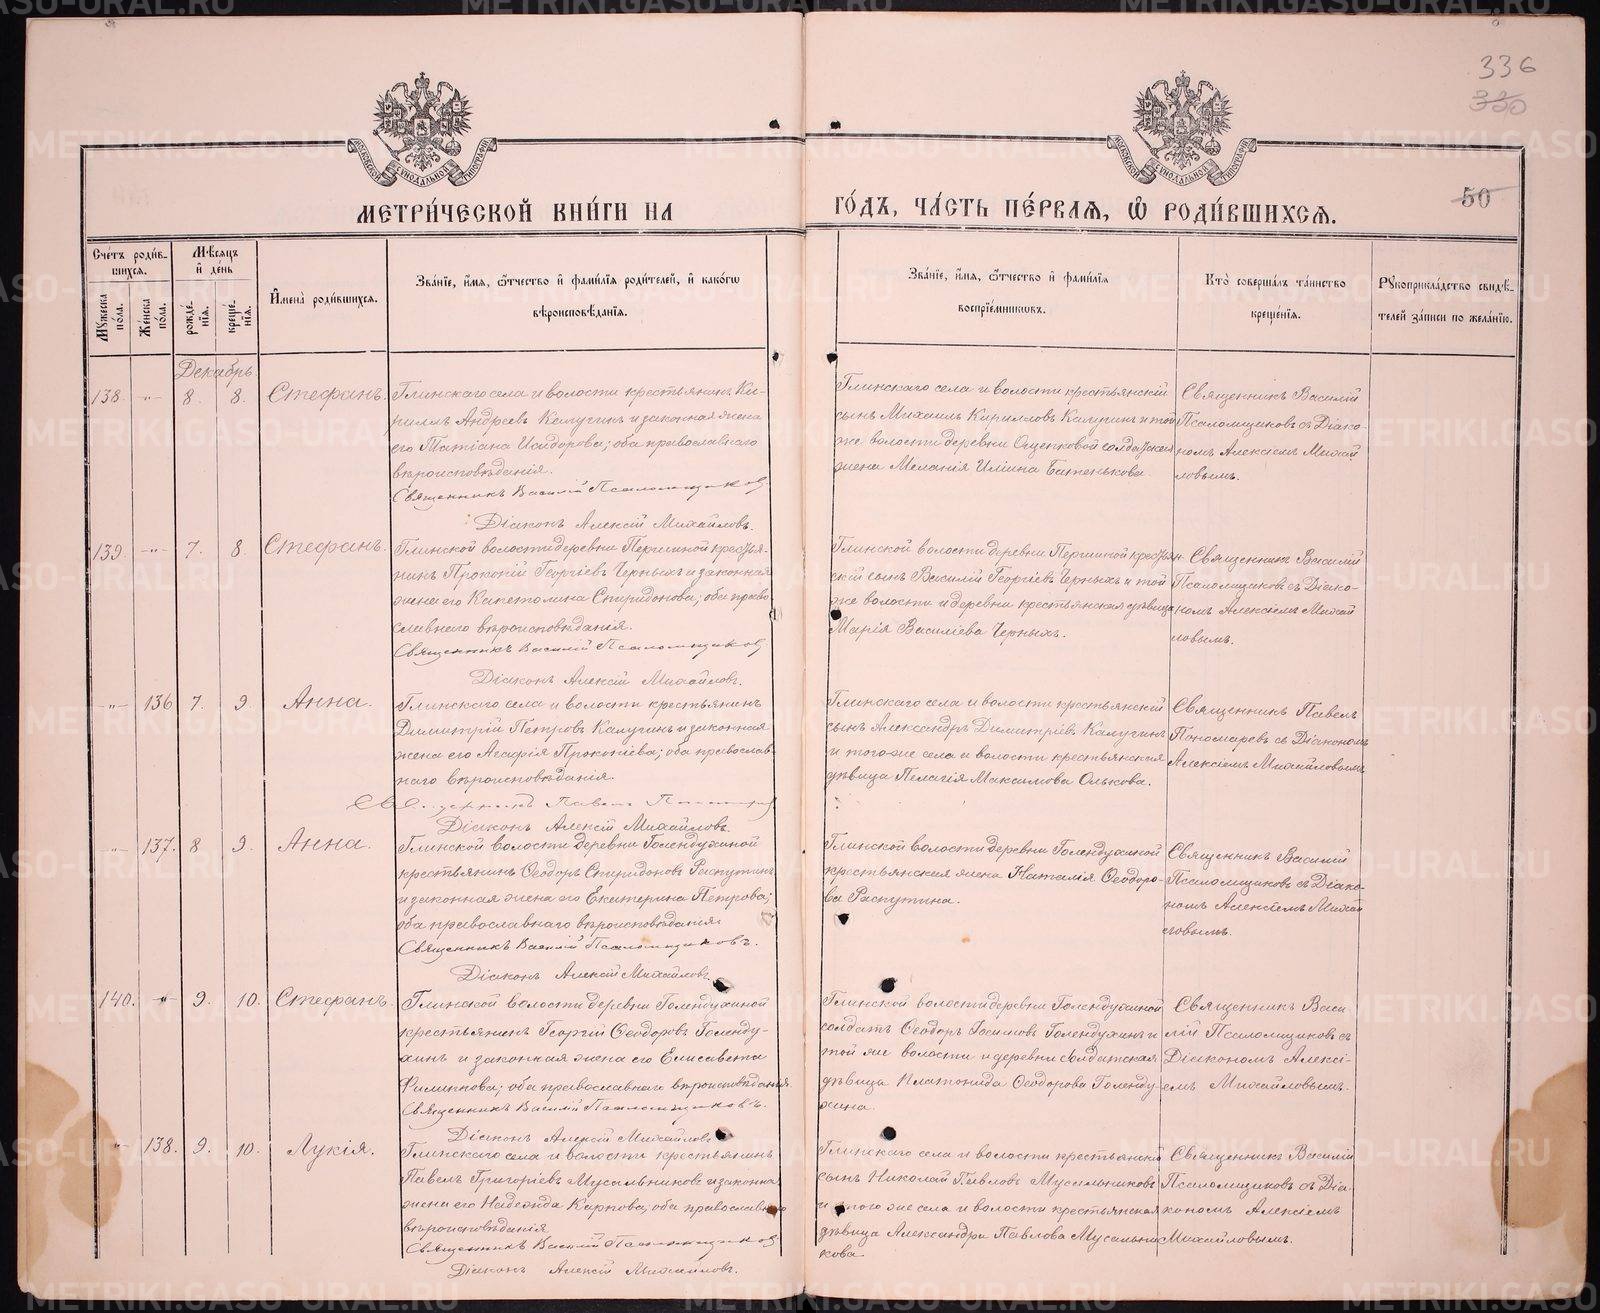 336
330
50
МЕТРИ́ЧЕСКОЙ КНИ́ГИ НА
ГО́ДЪ, ЧА́СТЬ ПЕ́РВАѦ, Ѽ РОДИ́ВШИХСѦ.
МОСКОВСКОЙ СѴНОДАЛЬНОЙ ТИПОГРАФІИ
МОСКОВСКОЙ СѴНОДАЛЬНОЙ ТИПОГРАФІИ
Сче́тъ роди́в-
шихсѧ.
Мꙋ́жеска по́ла.
Же́нска по́ла.
Мѣ́сѧцъ
и҆ день
рожде́-
нїѧ.
креще́-
нїѧ.
И҆мена̀ роди́вшихсѧ.
Зва́нїе, и҆́мѧ, ѻ҆́тчество и҆ фами́лїѧ роди́телей, и҆ како́гѡ
вѣроисповѣ́данїѧ.
Зва́нїе, и҆́мѧ, ѻ҆́тчество и҆ фами́лїѧ
воспрїе́мникѡвъ.
Кто̀ соверша́лъ та́инство
креще́нїѧ.
Рꙋкоприкла́дство свидѣ́-
телей за́писи по жела́нїю.
Декабрь
138. -"- 8. 8. Стефанъ.
Глинскаго села и волости крестьянинъ Ки-
риллъ Андреевъ Калугинъ и законная жена
его Татіана Исидорова; оба православнаго
вѣроисповѣданія.
Священникъ Василій Псаломщиковъ
Діаконъ Алексій Михайловъ.
Глинскаго села и волости крестьянскій
сынъ Михаилъ Кирилловъ Калугинъ и той
же волости деревни Ощепковой солдатская
жена Меланія Иліина Батенькова.
Священникъ Василій
Псаломщиковъ съ Діако-
номъ Алексіемъ Михай
ловымъ.
139. -"- 7. 8. Стефанъ.
Глинской волости деревни Першиной крестья-
нинъ Прокопій Георгіевъ Черныхъ и законная
жена его Капетолина Спиридонова; оба право-
славнаго вѣроисповѣданія.
Священникъ Василій Псаломщиковъ
Діаконъ Алексій Михайловъ.
Глинской волости деревни Першиной крестьян-
скій сынъ Василій Георгіевъ Черныхъ и той
же волости и деревни крестьянская дѣвица
Марія Василіева Черныхъ.
Священникъ Василій
Псаломщиковъ съ Діако-
номъ Алексіемъ Михай
ловымъ.
-"- 136 7. 9. Анна.
Глинскаго села и волости крестьянинъ
Димитрій Петровъ Калугинъ и законная
жена его Агафія Прокопіева; оба православ-
наго вѣроисповѣданія.
Священникъ Павелъ
Діаконъ Алексій Михайловъ.
Глинскаго села и волости крестьянскій
сынъ Александръ Димитріевъ Калугинъ
и того-же села и волости крестьянская
дѣвица Пелагія Максимова Олькова.
Священникъ Павелъ
Пономаревъ съ Діакономъ
Алексіемъ Михайловымъ
-"- 137. 8 9. Анна.
Глинской волости деревни Голендухиной
крестьянинъ Ѳеодоръ Спиридоновъ Распутинъ
и законная жена его Екатерина Петрова;
оба православнаго вѣроисповѣданія.
Священникъ Василій Псаломщиковъ.
Діаконъ Алексій Михайловъ
Глинской волости деревни Голендухиной
крестьянская жена Наталія Ѳеодоро-
ва Распутина.
Священникъ Василій
Псаломщиковъ съ Діако-
номъ Алексіемъ Михай
ловымъ.
140. -"- 9. 10. Стефанъ.
Глинской волости деревни Голендухиной
крестьянинъ Георгій Ѳеодоровъ Голенду-
хинъ и законная жена его Елисавета
Филиппова; оба православнаго вѣроисповѣданія.
Священникъ Василій Псаломщиковъ.
Діаконъ Алексій Михайловъ
Глинской волости деревни Голендухиной
солдатъ Ѳеодоръ Голендухинъ и
той же волости и деревни солдатская
дѣвица Платонида Ѳеодорова Голенду-
хина.
Священникъ Васи
лій Псаломщиковъ съ
Діакономъ Алексі-
емъ Михайловымъ.
" 138. 9. 10. Лукія.
Глинскаго села и волости крестьянинъ
Павелъ Григоріевъ Мусальниковъ и законная
жена его Надежда Карпова; оба православнаго
вѣроисповѣданія
Священникъ Василій Псаломщиковъ
Діаконъ Алексій Михайловъ.
Глинскаго села и волости крестьянскій
сынъ Николай Павловъ Мусальниковъ
и того же села и волости крестьянская
дѣвица Александра Павлова Мусальни-
кова.
Священникъ Василій
Псаломщиковъ съ Діа-
кономъ Алексіемъ
Михайловымъ.
METRIKI.GASO-URAL.RU